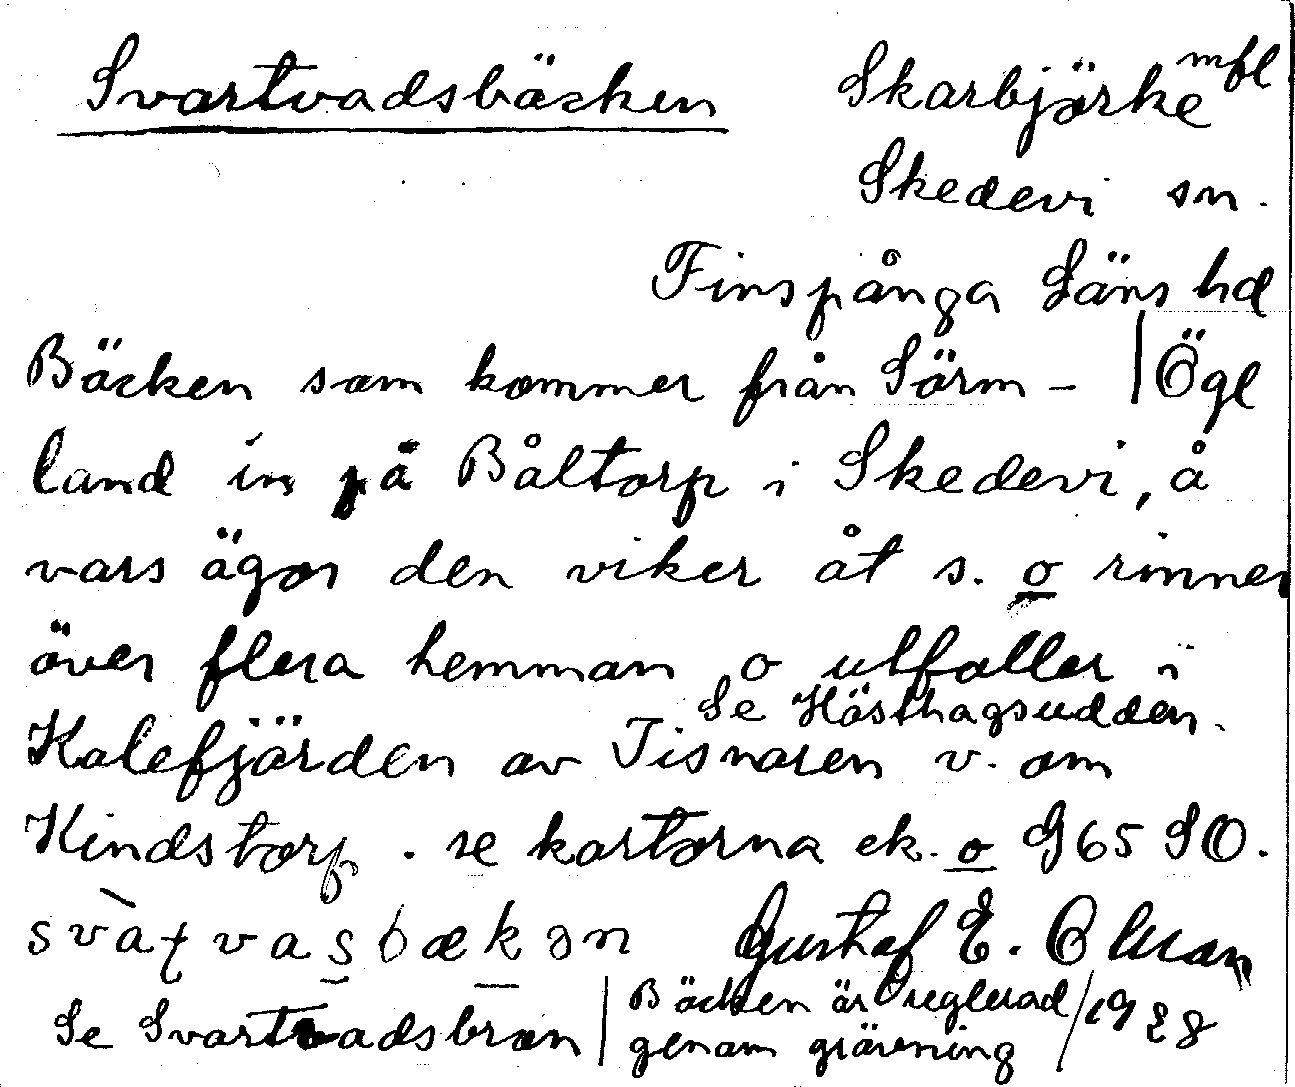 Svartvadsbäcken
Skarbjörke mfl
Skedevi sn.
Finspånga Läns hd
Bäcken som kommer från Sörm- | Ögl
land in på Båltorp i Skedevi, å
vars ägor den viker åt s. o rinner
över flera hemman o utfaller i
Se Hästhagsudden.
Kalefjärden av Tisnaren v. om
Kindstorp. se kartorna ek. o G65 SO.
Gustaf E.
Se Svartvadsbron
Bäcken är reglerad
genom grävning
/1928